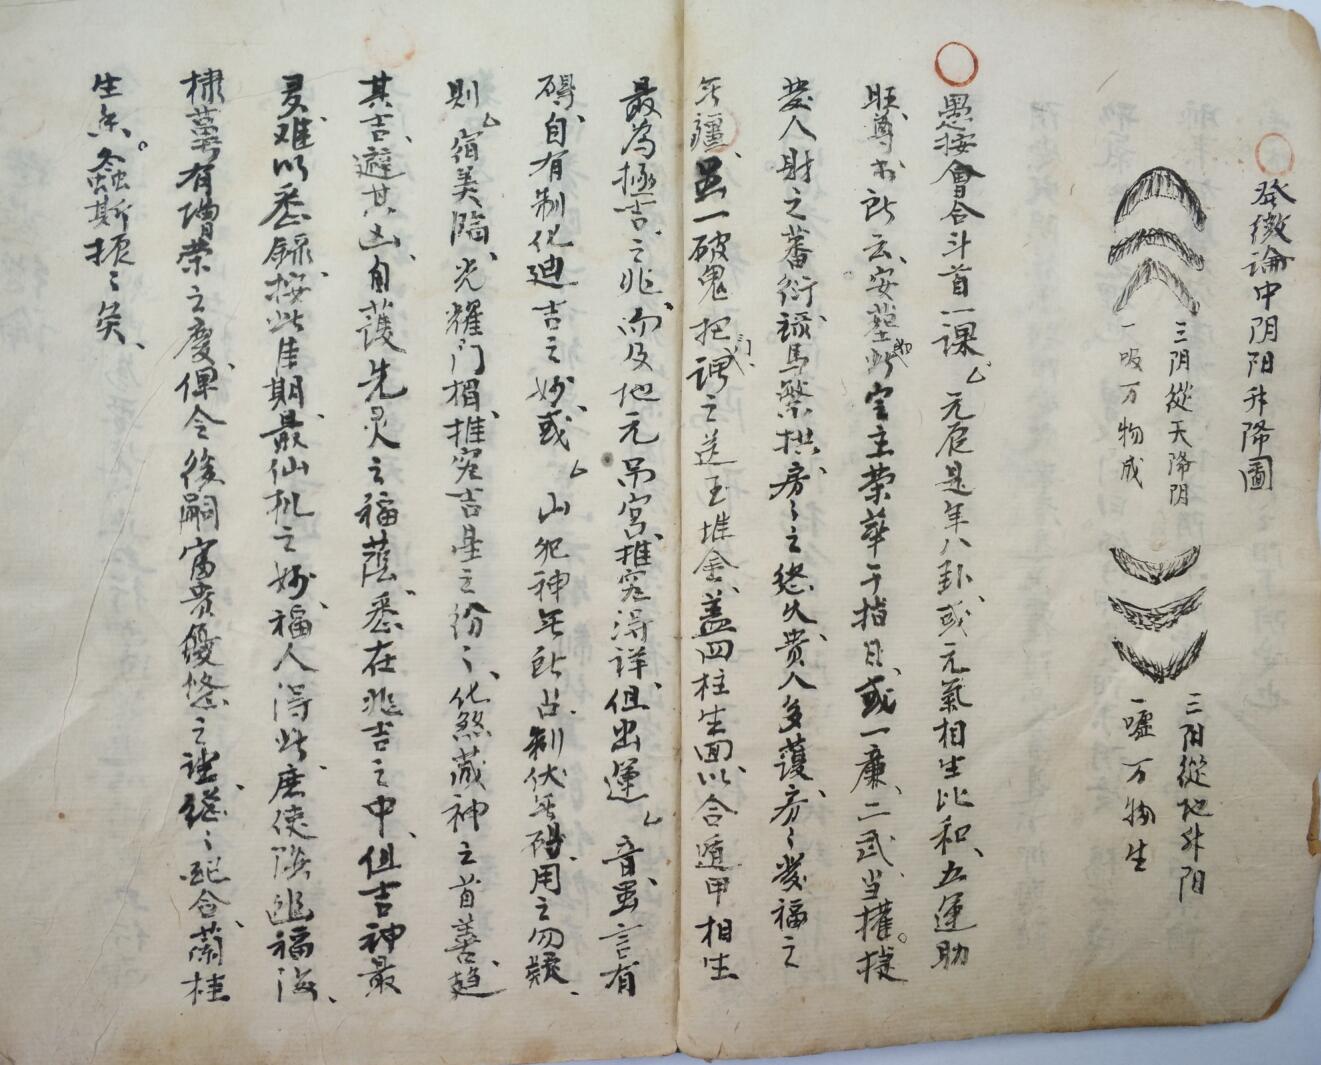 發微論中阴阳升降圖
三阴從天降阴
一吸万物成
三阳從地升阳
一嘘万物生
愚按會合斗首一課厶元辰是年八卦或元氣相生比和五運助
旺尊术所云安墓此定主荣華于指日或一廉二武当權捉
發人財之蕃衍禄馬繁拱房之悠久貴人多護房々發福之
无疆一破鬼把門之送玉堆金盖四柱生面以合遁甲相生
最為極吉之兆而及地元吊宮推究得详但出運厶音虽言有
碍自有制化廸吉之妙或厶山犯神无所占制伏无碍用之勿疑
則厶宿美臨光耀门楣推究吉星之纷々化煞藏神之首善趋
其吉避其凶自護先灵之福蔭悉在兆吉之中但吉神最
灵难以悉錄按此佳期最仙机之妙福人得此庶使隂福海
棣萼有增荣之慶俾令後嗣富贵優悠之継々配合蘭桂
生点螽斯振々矣